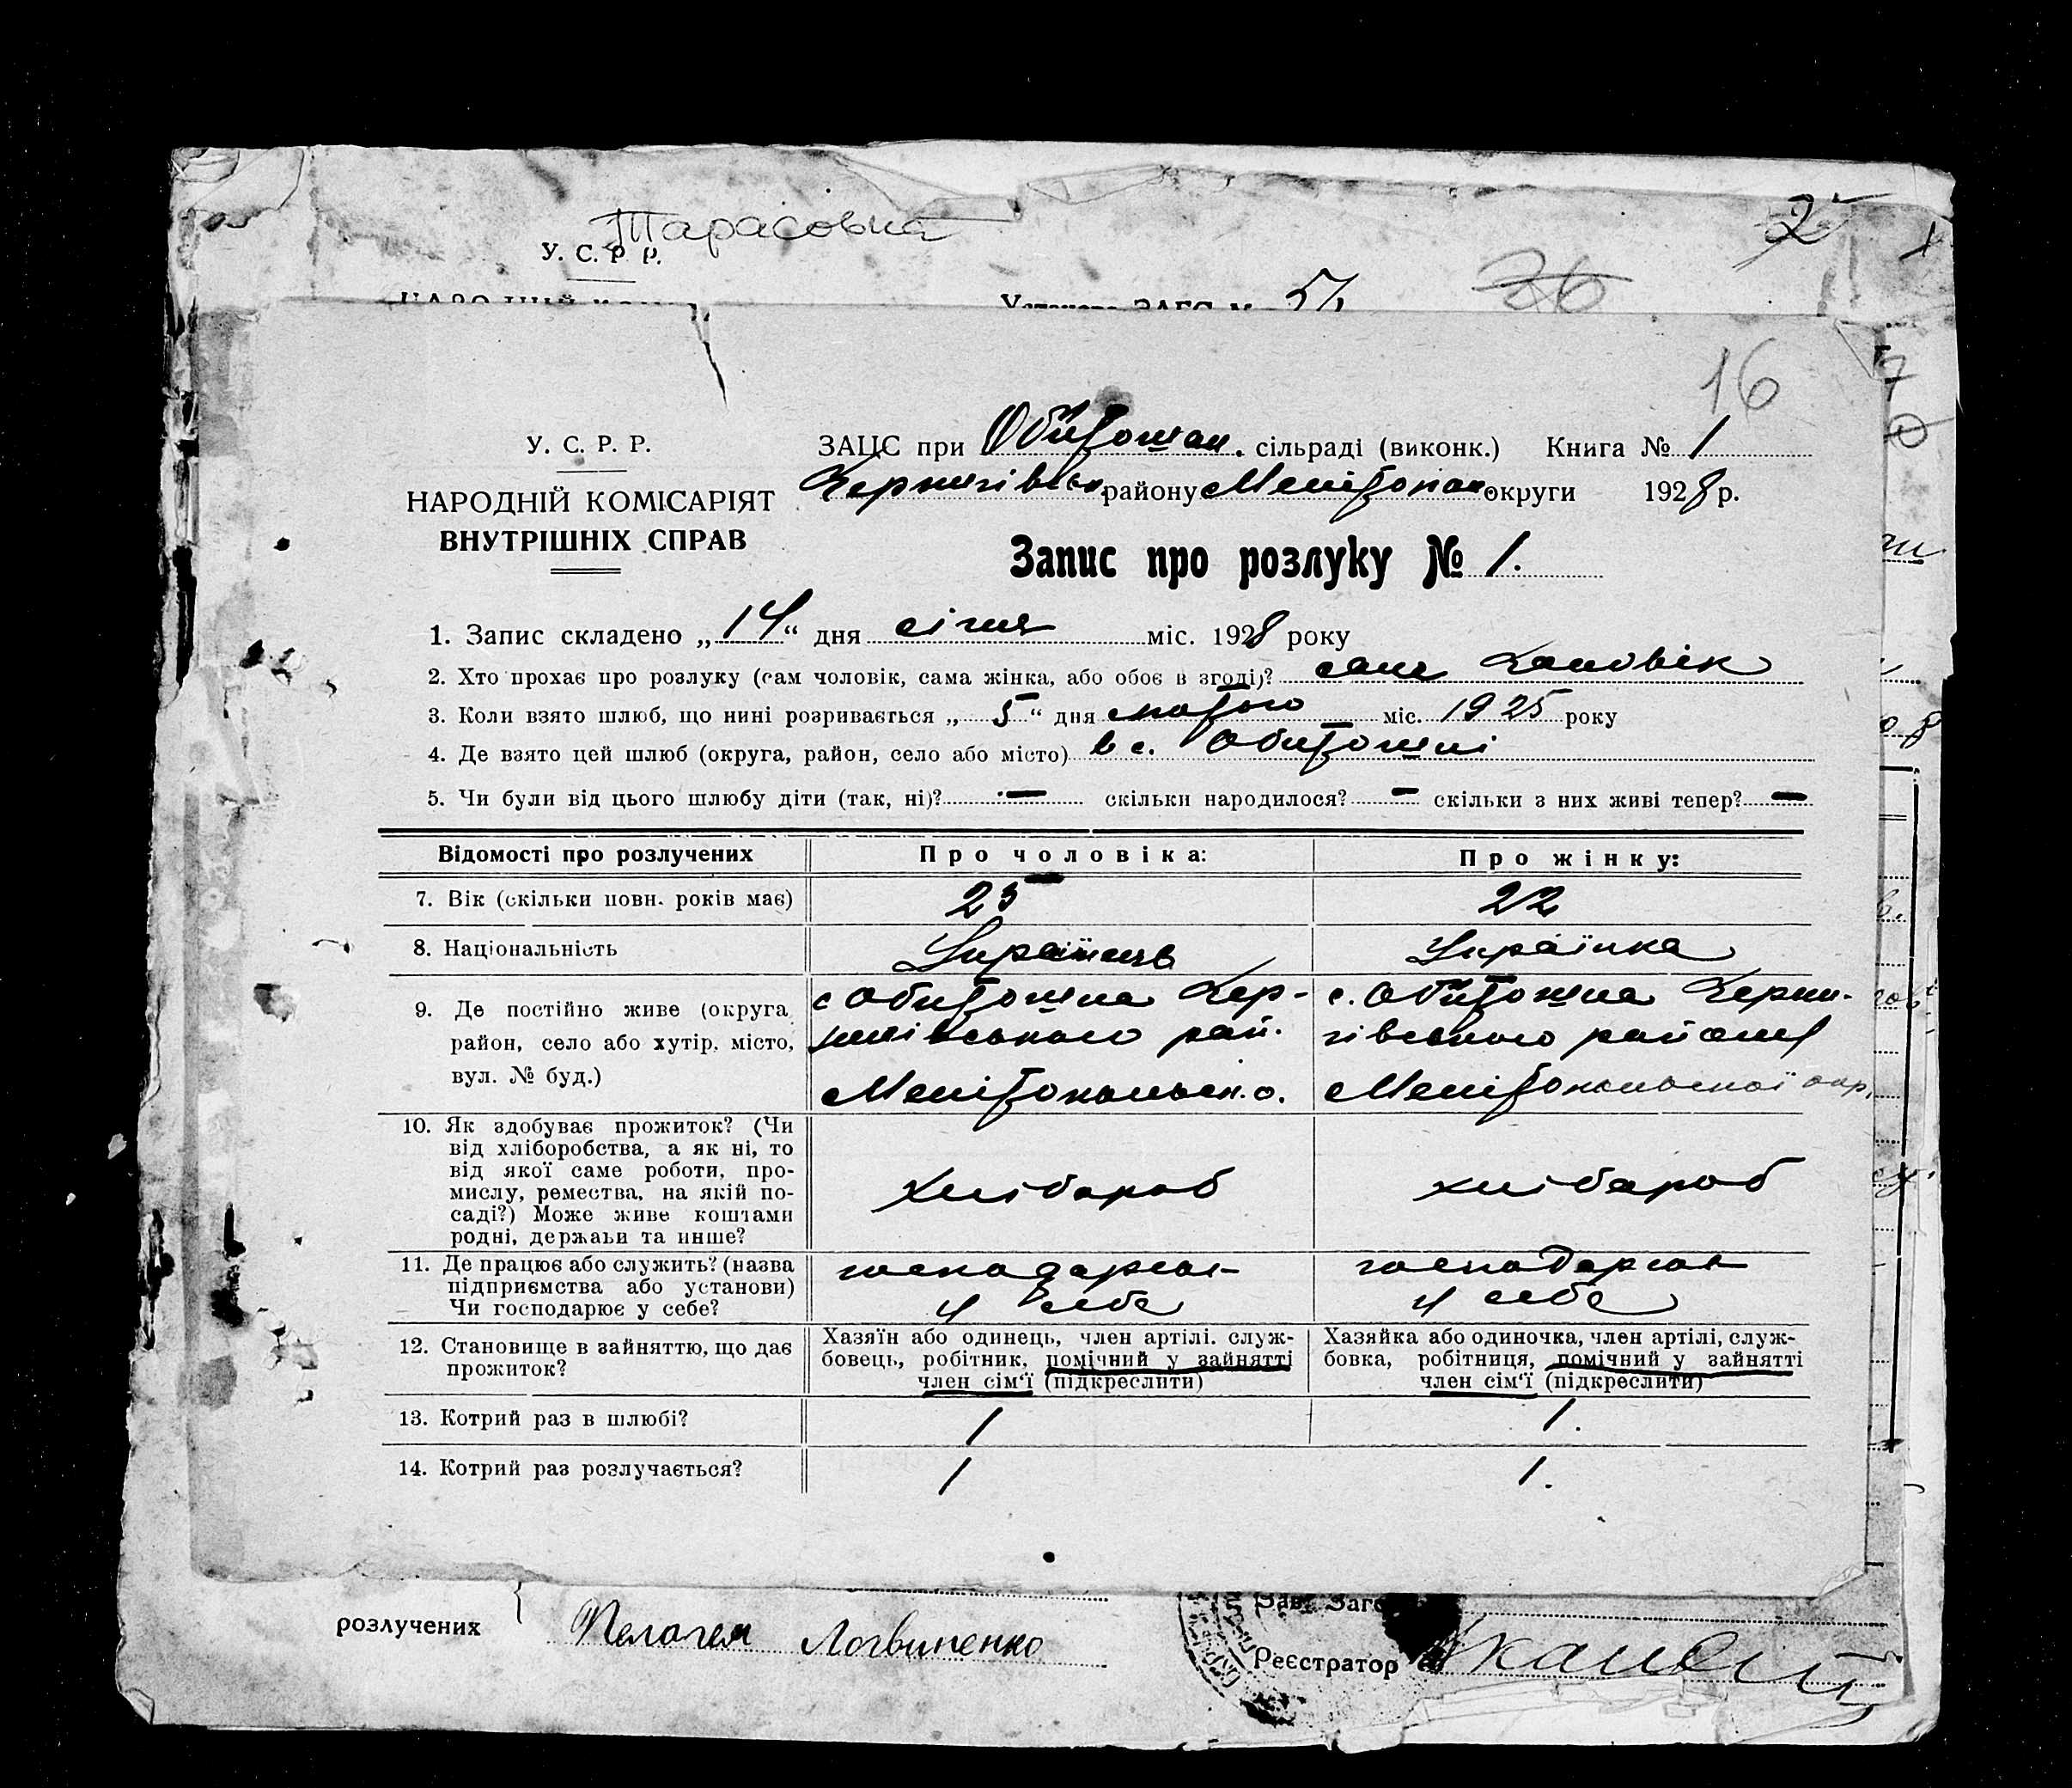 Тарасовка
2
У. С. Р. Р.
51
36
16
У. С. Р. Р.
ЗАЦС при Обитошан. сільраді (виконк.) Книга № 1
НАРОДНІЙ КОМІСАРІЯТ
Чернигівськ. району Мелітопол. округи 1928 р.
ВНУТРІШНІХ СПРАВ
Запис про розлуку № 1.
1. Запис складено „14“ дня січня міс. 1928 року
2. Хто прохає про розлуку (сам чоловік, сама жінка, або обоє в згоді)? сам чоловік
3. Коли взято шлюб, що нині розривається „5“ дня лютого міс. 1925 року
4. Де взято цей шлюб (округа, район, село або місто) в с. Обитошні
5. Чи були від цього шлюбу діти (так, ні)? — скільки народилося? — скільки з них живі тепер? —
Відомості про розлучених Про чоловіка: Про жінку:
7. Вік (скільки повн. років має) 25 22
8. Національність Українець Українка
9. Де постійно живе (округа, район, село або хутір, місто, вул. № буд.)
с Обитошна Чер-
нигівського рай.
Мелітопольськ. о.
с. Обитошна Черни-
гівського району
Мелітопольської окр.
10. Як здобуває прожиток? (Чи
від хліборобства, а як ні, то
від якої саме роботи, про-
мислу, ремества, на якій по-
саді?) Може живе коштами
родні, держави та инше?
хлібороб хлібороб
11. Де працює або служить? (назва
підприємства або установи)
Чи господарює у себе?
господарює
у себе
господарює
у себе
12. Становище в зайняттю, що дає
прожиток?
Хазяїн або одинець, член артілі. служ-
бовець, робітник, помічний у зайнятті
член сім‘ї (підкреслити)
Хазяйка або одиночка, член артілі, служ-
бовка, робітниця, помічний у зайнятті
член сім‘ї (підкреслити)
13. Котрий раз в шлюбі? 1 1.
14. Котрий раз розлучається? 1 1.
розлучених Пелагея Логвиненко
Зав. Заго
Реєстратор